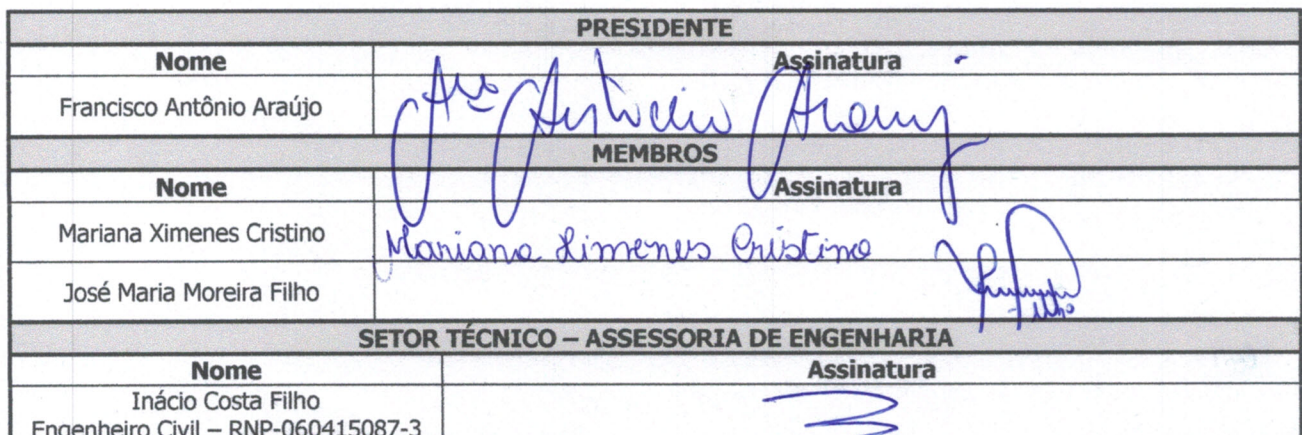 PRESIDENTE
Nome Assinatura
Francisco Antônio Araújo Fco Antonio Araujo
MEMBROS
Nome Assinatura
Mariana Ximenes Cristino Mariana Ximenes Cristino
José Maria Moreira Filho Filho
SETOR TÉCNICO – ASSESSORIA DE ENGENHARIA
Nome Assinatura
Inácio Costa Filho
Engenheiro Civil – RNP-060415087-3